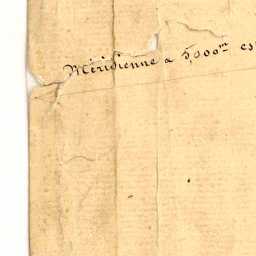 Méridienne a 5,000m es